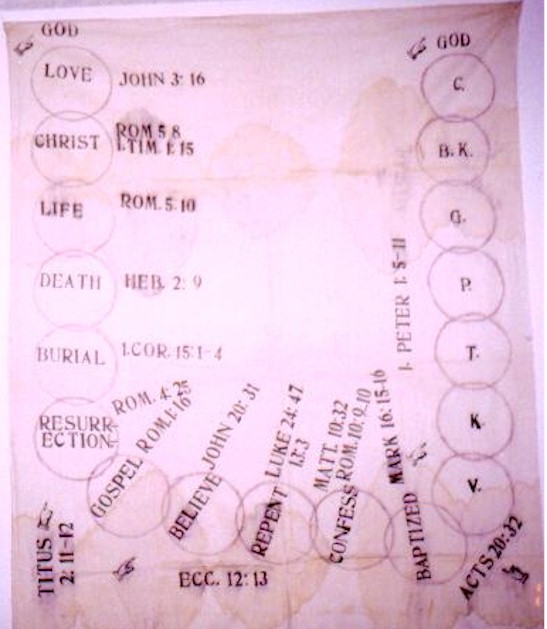 GOD
LOVE JOHN 3:16
CHRIST ROM 5 8
1.TIM. 1:15
LIFE ROM. 5:10
DEATH HEB. 2:9
BURIAL 1.COR. 15:1-4
RESURR
ECTION ROM. 4:25
GOSPEL ROM.1:16
BELIEVE JOHN 20:31
REPENT LUKE 24:47
13:3
CONFESS MATT. 10:32
ROM. 10:9,10
BAPTIZED MARK 16:15-16
TITUS
2:11-12
ECC. 12:13
ACTS 20:32
1. PETER 1:5-11
GOD
C.
B.K.
G.
P.
T.
K
V.